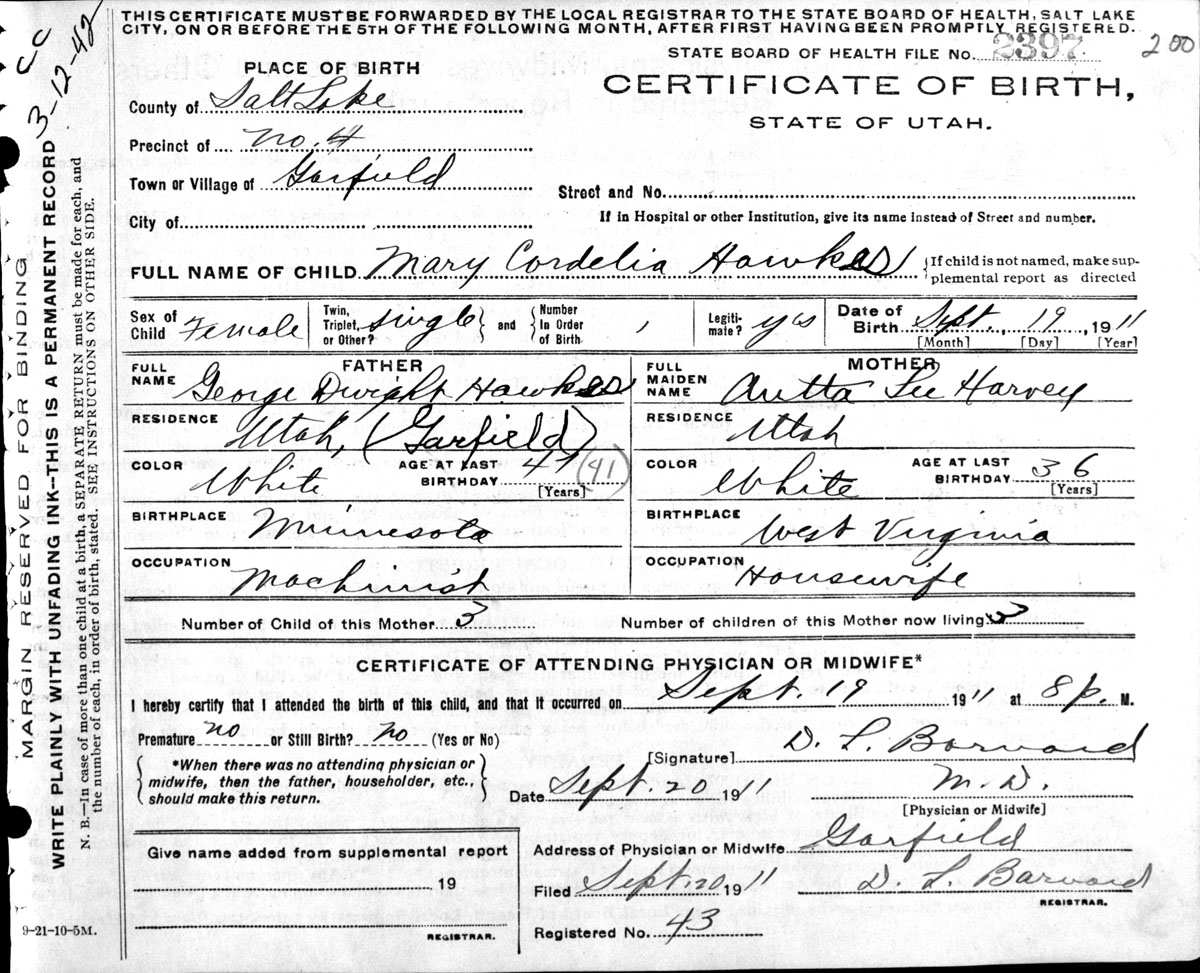 THIS CERTIFICATE MUST BE FORWARDED BY THE LOCAL REGISTRAR TO THE STATE BOARD OF HEALTH, SALT LAKE
CITY, ON OR BEFORE THE 5TH OF THE FOLLOWING MONTH, AFTER FIRST HAVING BEEN PROMPTLY REGISTERED.
STATE BOARD OF HEALTH FILE No. 2397 200
PLACE OF BIRTH
CERTIFICATE OF BIRTH,
STATE OF UTAH.
County of Salt Lake
Precinct of No. 4
Town or Village of Garfield
Street and No.
City of
If in Hospital or other Institution, give its name instead of Street and number.
FULL NAME OF CHILD Mary Cordelia Hawkes {If child is not named, make sup-
plemental report as directed
Sex of Child Female Twin, Triplet, or Other? single } and { Number In Order of Birth 1 Legiti-mate? yes Date of Birth Sept. 19, 1911
[Month] [Day] [Year]
FATHER MOTHER
FULL NAME George Dwight Hawkes FULL MAIDEN NAME Autta Lee Harvey
RESIDENCE Utah, (Garfield) RESIDENCE Utah
COLOR White AGE AT LAST BIRTHDAY 41 (41) [Years] COLOR White AGE AT LAST BIRTHDAY 36 [Years]
BIRTHPLACE Minnesota BIRTHPLACE West Virginia
OCCUPATION Machinist OCCUPATION Housewife
Number of Child of this Mother 3 Number of children of this Mother now living 3
CERTIFICATE OF ATTENDING PHYSICIAN OR MIDWIFE*
I hereby certify that I attended the birth of this child, and that it occurred on Sept. 19 1911 at 8 p. M.
Premature no or Still Birth? no (Yes or No)
[Signature] D. L. Barnard
{ *When there was no attending physician or
midwife, then the father, householder, etc.,
should make this return. }
Date Sept. 20 1911 M. D.
[Physician or Midwife]
Give name added from supplemental report
19
REGISTRAR.
Address of Physician or Midwife Garfield
Filed Sept. 20 1911 D. L. Barnard
REGISTRAR.
Registered No. 43
9-21-10-5M.
MARGIN RESERVED FOR BINDING
WRITE PLAINLY WITH UNFADING INK--THIS IS A PERMANENT RECORD
N. B.—In case of more than one child at a birth, a SEPARATE RETURN must be made for each, and
the number of each, in order of birth, stated. SEE INSTRUCTIONS ON OTHER SIDE.
CC
3-12-42